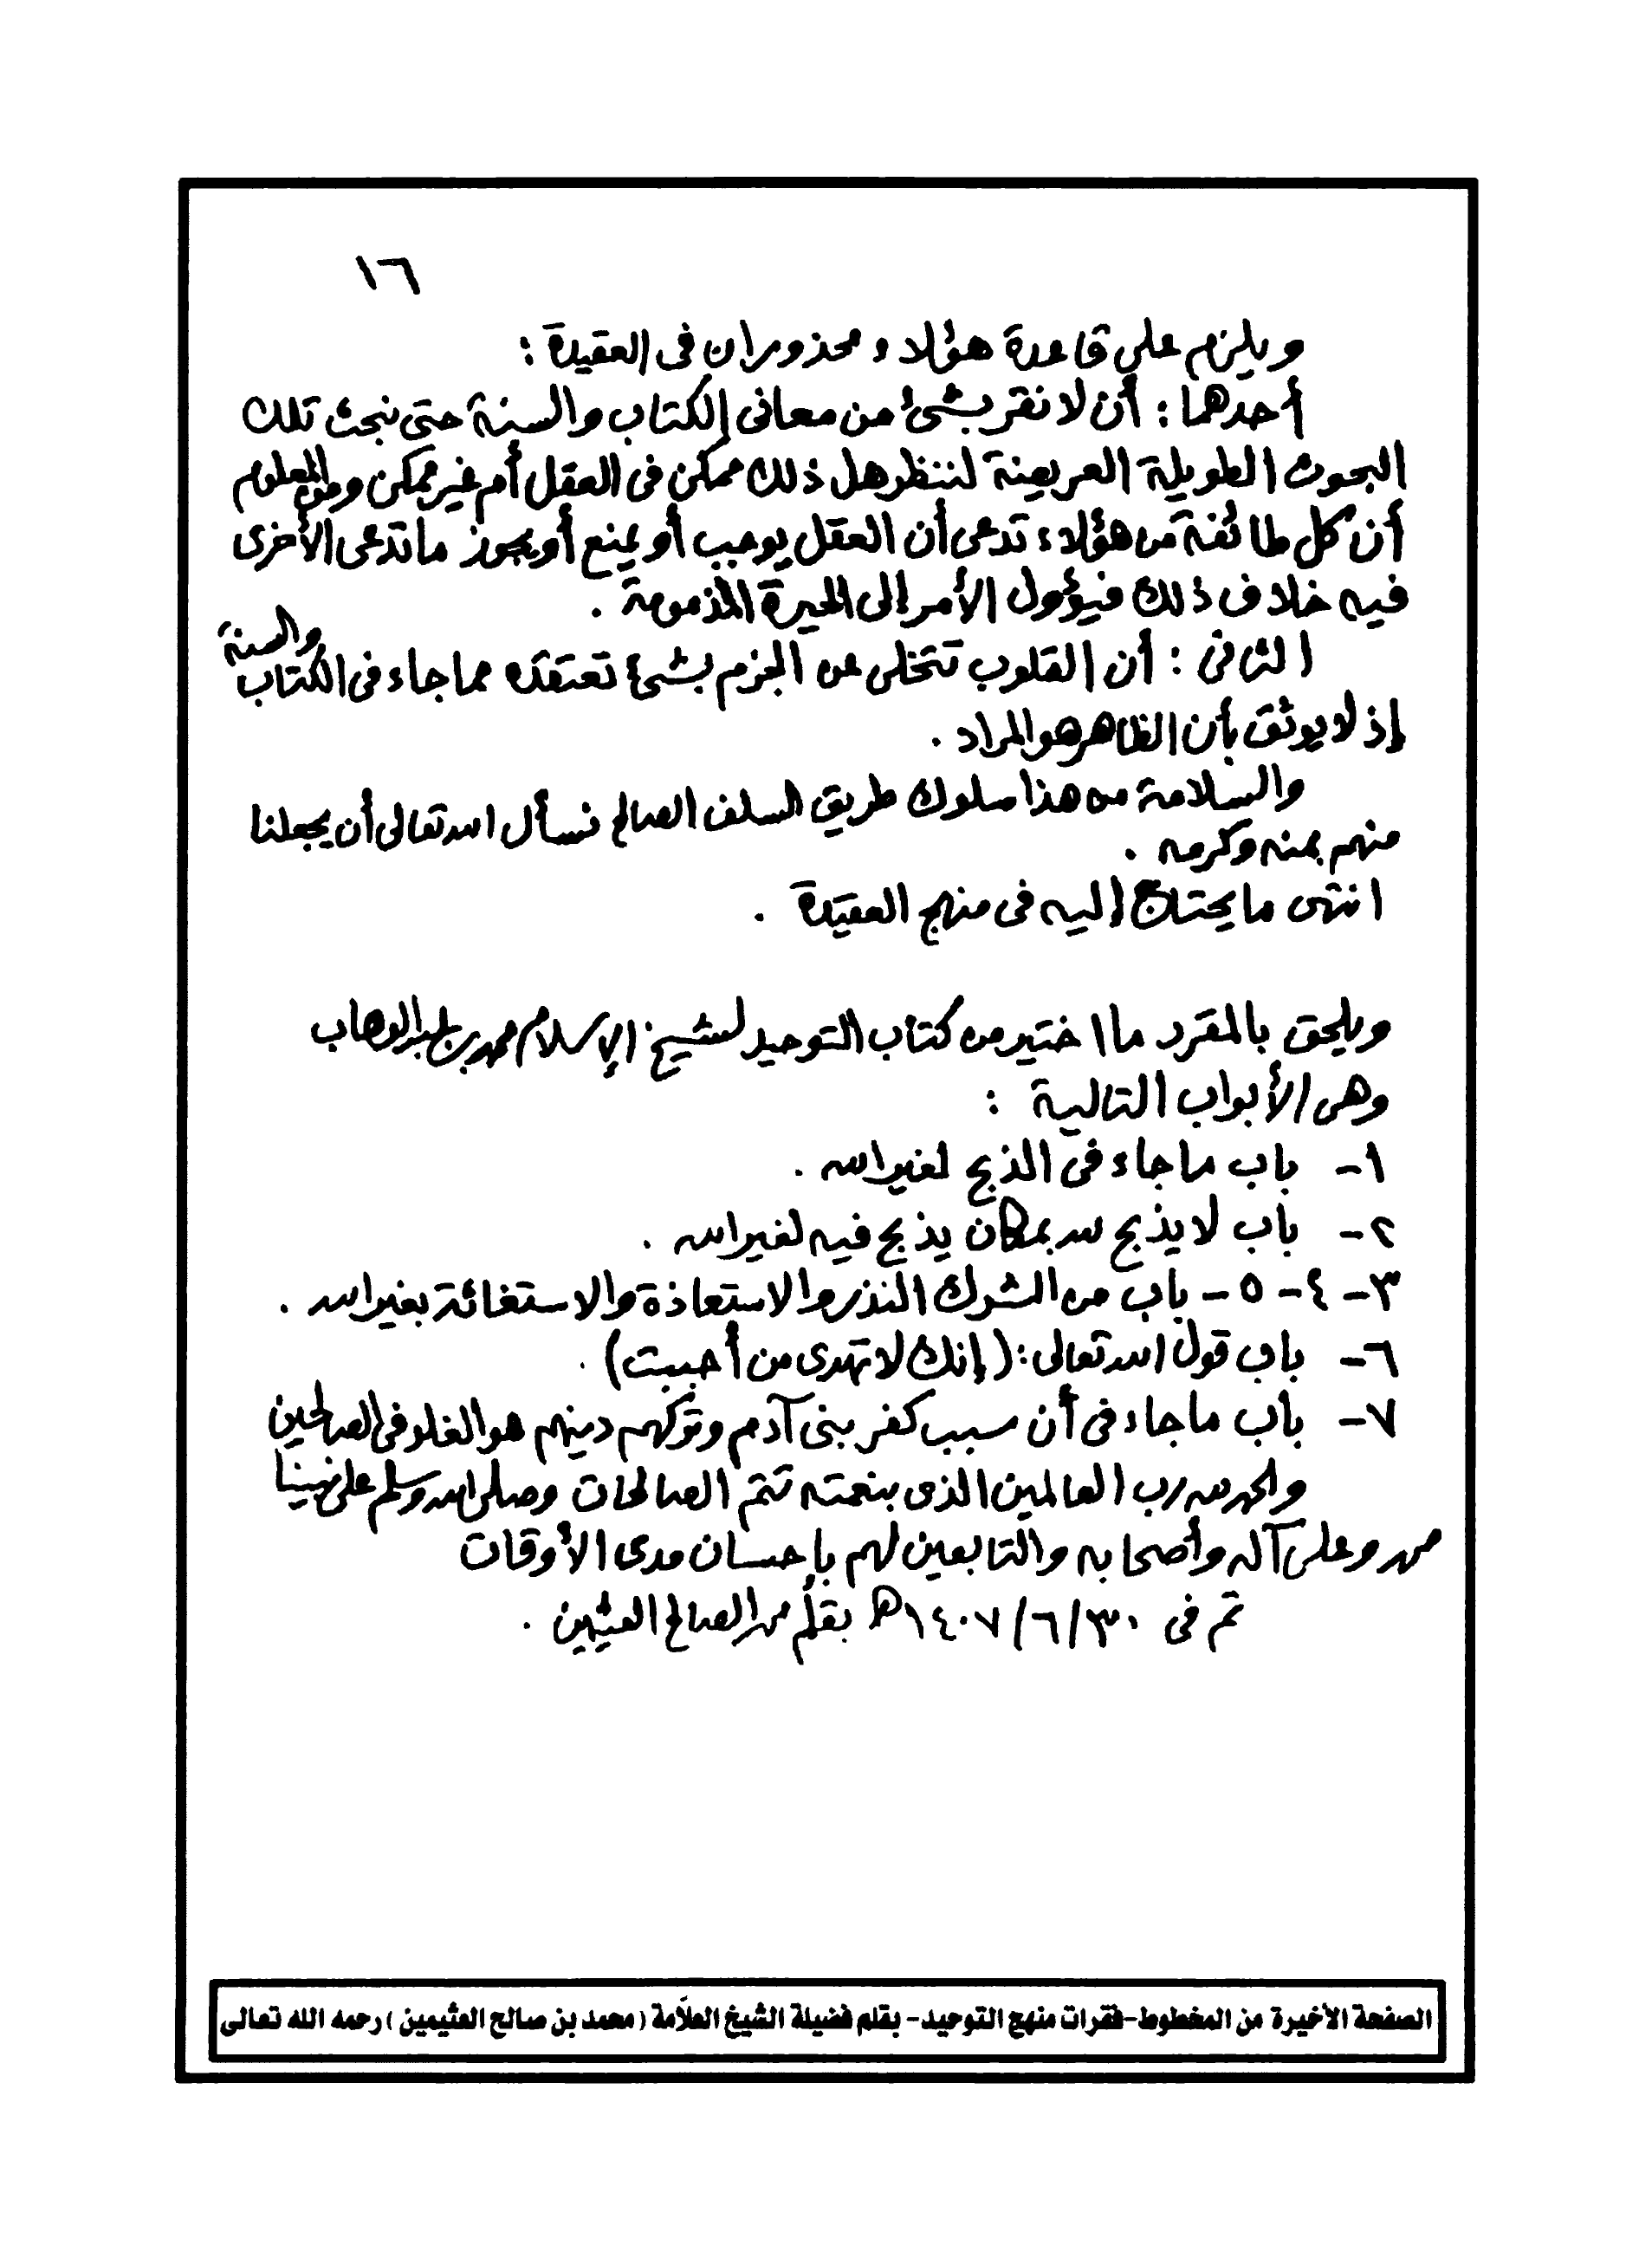 ١٦
ويلزم على قاعدة هؤلاء محذوران فى العقيدة :
أحدهما : أن لا نقر بشئ من معانى الكتاب والسنة حتى نبحث تلك
البحوث الطويلة العريضة لننظر هل ذلك ممكن فى العقل أم غير ممكن ومن المعلوم
أن كل طائفة من هؤلاء تدعى أن العقل يوجب أو يمنع أو يجوز ما تدعى الأخرى
فيه خلاف ذلك فيؤول الأمر إلى الحيرة المذمومة .
الثانى : أن القلوب تتخلى عن الجزم بشئ تعتقده مما جاء فى الكتاب والسنة
إذ لا يوثق بأن الظاهر هو المراد .
والسلامة من هذا سلوك طريق السلف الصالح نسأل الله تعالى أن يجعلنا
منهم بمنه وكرمه .
انتهى ما يحتاج إليه فى منهج العقيدة .
ويلحق بالمقرر ما اختير من كتاب التوحيد لشيخ الإسلام محمد بن عبد الوهاب
وهى الأبواب التالية :
١- باب ما جاء فى الذبح لغير الله .
٢- باب لا يذبح لله بمكان يذبح فيه لغير الله .
٣- ٤- ٥- باب من الشرك النذر والاستعاذة والاستغاثة بغير الله .
٦- باب قول الله تعالى : (إنك لا تهدى من أحببت) .
٧- باب ما جاء فى أن سبب كفر بنى آدم وتركهم دينهم هو الغلو فى الصالحين
والحمد لله رب العالمين الذى بنعمته تتم الصالحات وصلى الله وسلم على نبينا
محمد وعلى آله وأصحابه والتابعين لهم بإحسان مدى الأوقات
تم فى ٣٠/٦/١٤٠٧هـ بقلم محمد الصالح العثيمين .
الصفحة الأخيرة من المخطوط-فقرات منهج التوحيد- بقلم فضيلة الشيخ العلاّمة (محمد بن صالح العثيمين) رحمه الله تعالى